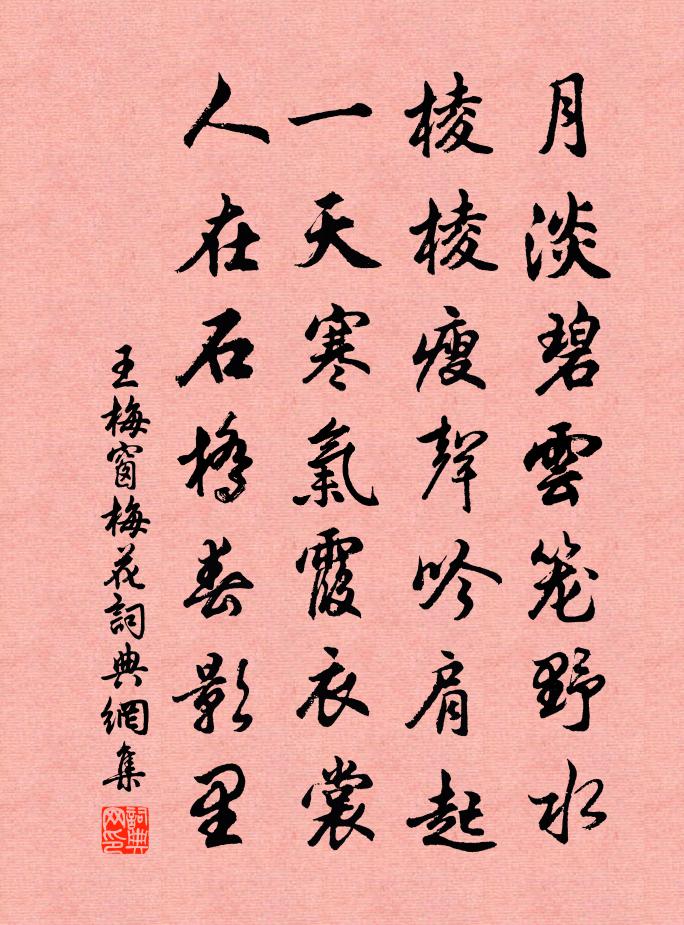 月淡碧雲笼野水
棱棱瘦聳吟肩起
一天寒氣霞衣裳
人在石橋春影里
王梅窗梅花詞典網集
詞典网印